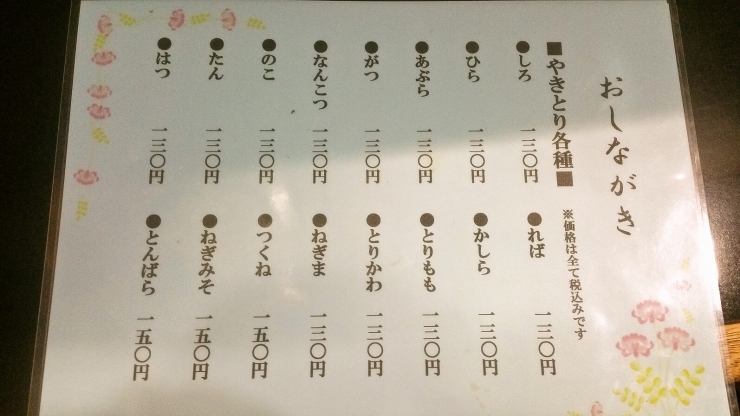 おしながき
■やきとり各種■
※価格は全て税込みです
●しろ 一三〇円
●ひら 一三〇円
●あぶら 一三〇円
●がつ 一三〇円
●なんこつ 一三〇円
●のこ 一三〇円
●たん 一三〇円
●はつ 一三〇円
●れば 一三〇円
●かしら 一三〇円
●とりもも 一三〇円
●とりかわ 一三〇円
●ねぎま 一三〇円
●つくね 一五〇円
●ねぎみそ 一五〇円
●とんばら 一五〇円